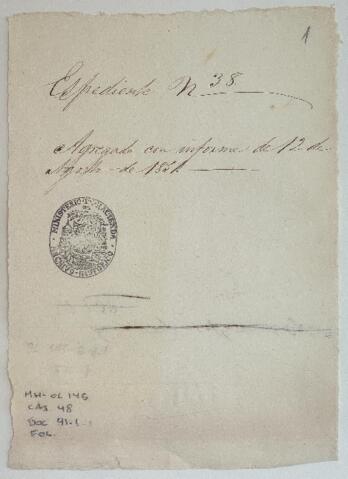 1
Espediente N 38.
Agregado con informe de 12 de
Agosto de 1851.
MINISTERIO DE HACIENDA
ARCHIVO HISTORICO
MH-OL 146
CAJ. 48
DOC 93-1
FOL.